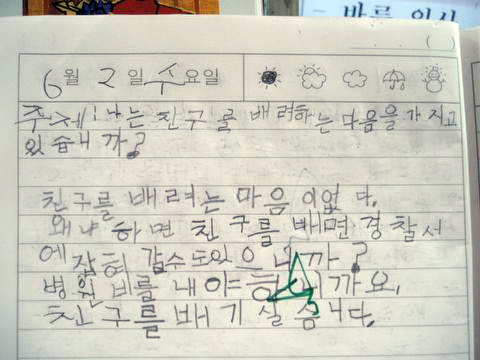 ( )
6월 2일 수요일
주제:나는 친구를 배려하는 다음을 가지고
있습니까?
친구를 배려는 마음이없다.
왜냐하면 친구를 배면 경찰서
에 잡혀 갈수도있으니까?
병원비를 내야하니까요.
친구를 배기 실습니다.